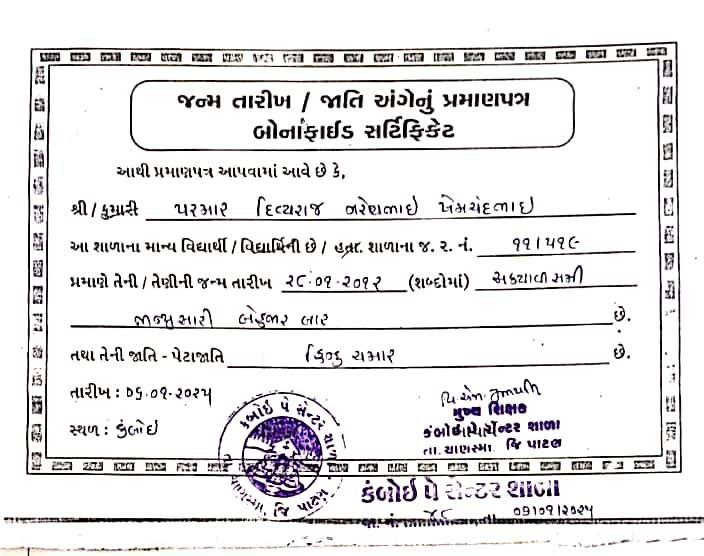 જન્મ તારીખ / જાતિ અંગેનું પ્રમાણપત્ર
બોનાફાઈડ સર્ટિફિકેટ
આથી પ્રમાણપત્ર આપવામાં આવે છે કે,
શ્રી / કુમારી પરમાર દિવ્યરાજ નરેશભાઈ ખેમચંદભાઈ
આ શાળાના માન્ય વિદ્યાર્થી / વિદ્યાર્થિની છે / શાળાના જ. ર. નં. ૧૧/૫૧૯
પ્રમાણે તેની / તેણીની જન્મ તારીખ ૨૮.૦૧.૨૦૧૨ (શબ્દોમાં) અઠયાવીસમી
જાન્યુઆરી બેહજાર બાર છે.
તથા તેની જાતિ - પેટાજાતિ હિન્દુ ચમાર છે.
તારીખ : ૦૬.૦૧.૨૦૨૫
મુખ્ય શિક્ષક
સ્થળ : કંબોઈ
કંબોઈ પે સેન્ટર શાળા
તા. ચાણસ્મા જિ પાટણ
કંબોઈ પે સેન્ટર શાળા
કંબોઈ પે સેન્ટર શાળા